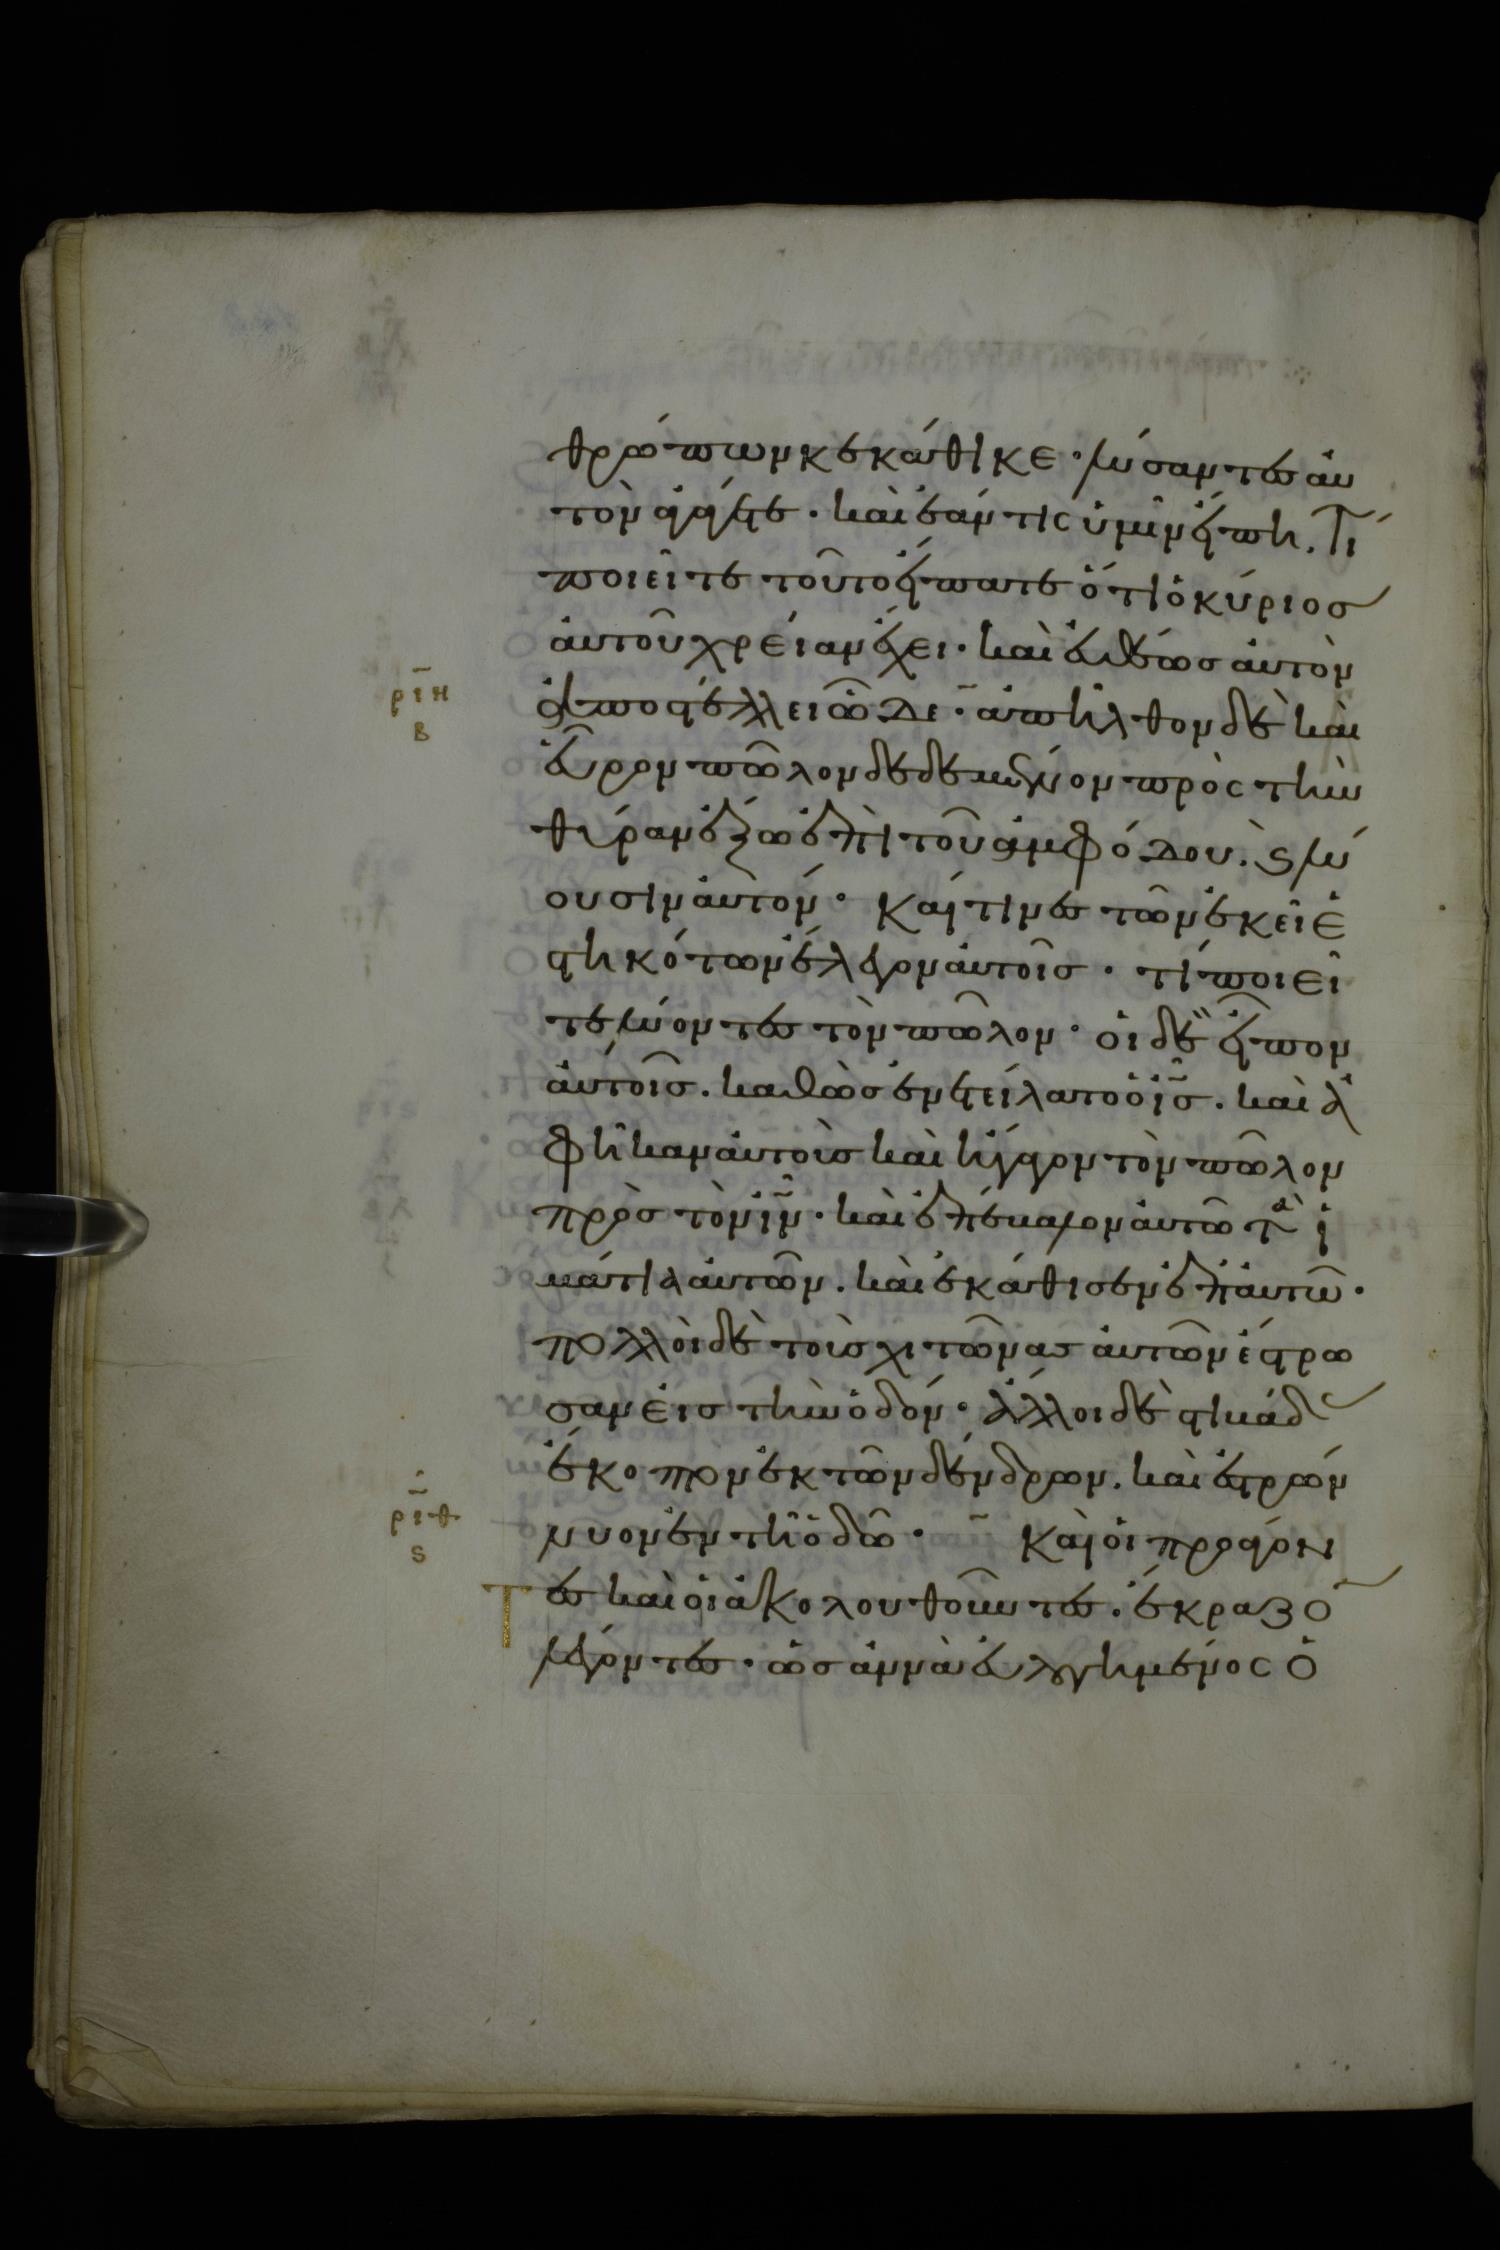 θρώπων κεκάθικε· λύσαντες αυ
τὸν ἀγάγετε· καὶ ἐάν τις ὑμῖν εἴπη. Τί
ποιεῖτε τοῦτο εἴπατε ὅτι ὁ κύριος
αὐτοῦ χρείαν ἔχει· καὶ εὐθέως αὐτὸν
ρ̅ι̅η̅
β
ἀποστέλλει ὧδε· ἀπῆλθον δὲ καὶ
εὗρον πῶλον δεδεμένον πρὸς τὴν
θύραν ἔξω ἐπὶ τοῦ ἀμφόδου. ϗ λύ
ουσιν αὐτόν· Καί τινες τῶν ἐκεῖ ἑ
στηκότων ἔλεγον αὐτοῖς· τί ποιεῖ
τε λύοντες τὸν πῶλον· οἱ δὲ εἶπον
αὐτοῖς. καθὼς ἐνετείλατο ὁ ι̅ς̅. καὶ ἀ
φῆκαν αὐτοὺς καὶ ἤγαγον τὸν πῶλον
πρὸς τὸν ι̅ν̅· καὶ ἐπέβαλον αὐτῶ τὰ ἱ
μάτια αὐτῶν. καὶ ἐκάθισεν ἐπ' αὐτῶ·
πολλοὶ δὲ τοὺς χιτῶνας αὐτῶν ἔστρω
σαν εἰς τὴν ὁδόν· ἄλλοι δὲ στιβάδας
ἔκοπτον ἐκ τῶν δένδρων. καὶ ἐστρών
ρ̅ι̅θ̅
ϛ
νυον ἐν τῆ ὁδῶ· Καὶ οἱ προάγον
Τες καὶ οἱ ἀκολουθοῦντες. ἔκραζο̅
λέγοντες· ὡσαννὰ εὐλογημένος ὁ